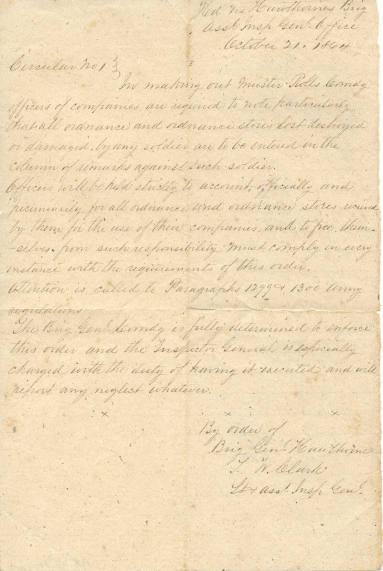 Hd Qrs Hawthornes Brig
Asst Insp Genl Office
October 21. 1864
Circular No 1 }
In making out Muster Rolls Comdg
officers of companies are required to note particularly
that all ordnance and ordnance stores lost destroyed
or damaged, by any soldier are to be entered in the
column of remarks against such soldier.
Officers will be held strictly to account, officially and
pecuniarily, for all ordnance, and ordnance stores received
by them for the use of their companies, and to free them-
selves from such responsibility must comply in every
instance with the requirements of this order.
Attention is called to Paragraphs 1299 & 1300 Army
regulations
The Brig Genl Comdg is fully determined to enforce
this order and the Inspector General is especially
charged with the duty of having it executed and will
report any neglect whatever.
x x x
By order of
Brig Genl Hawthorne
W. Clark
Lt & asst Insp Genl.